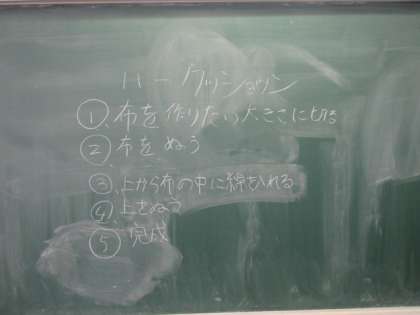 ハークッション
①布を作りたい大きさに切る
②布をぬう
③上から布の中に綿を入れる
④上をぬう
⑤完成